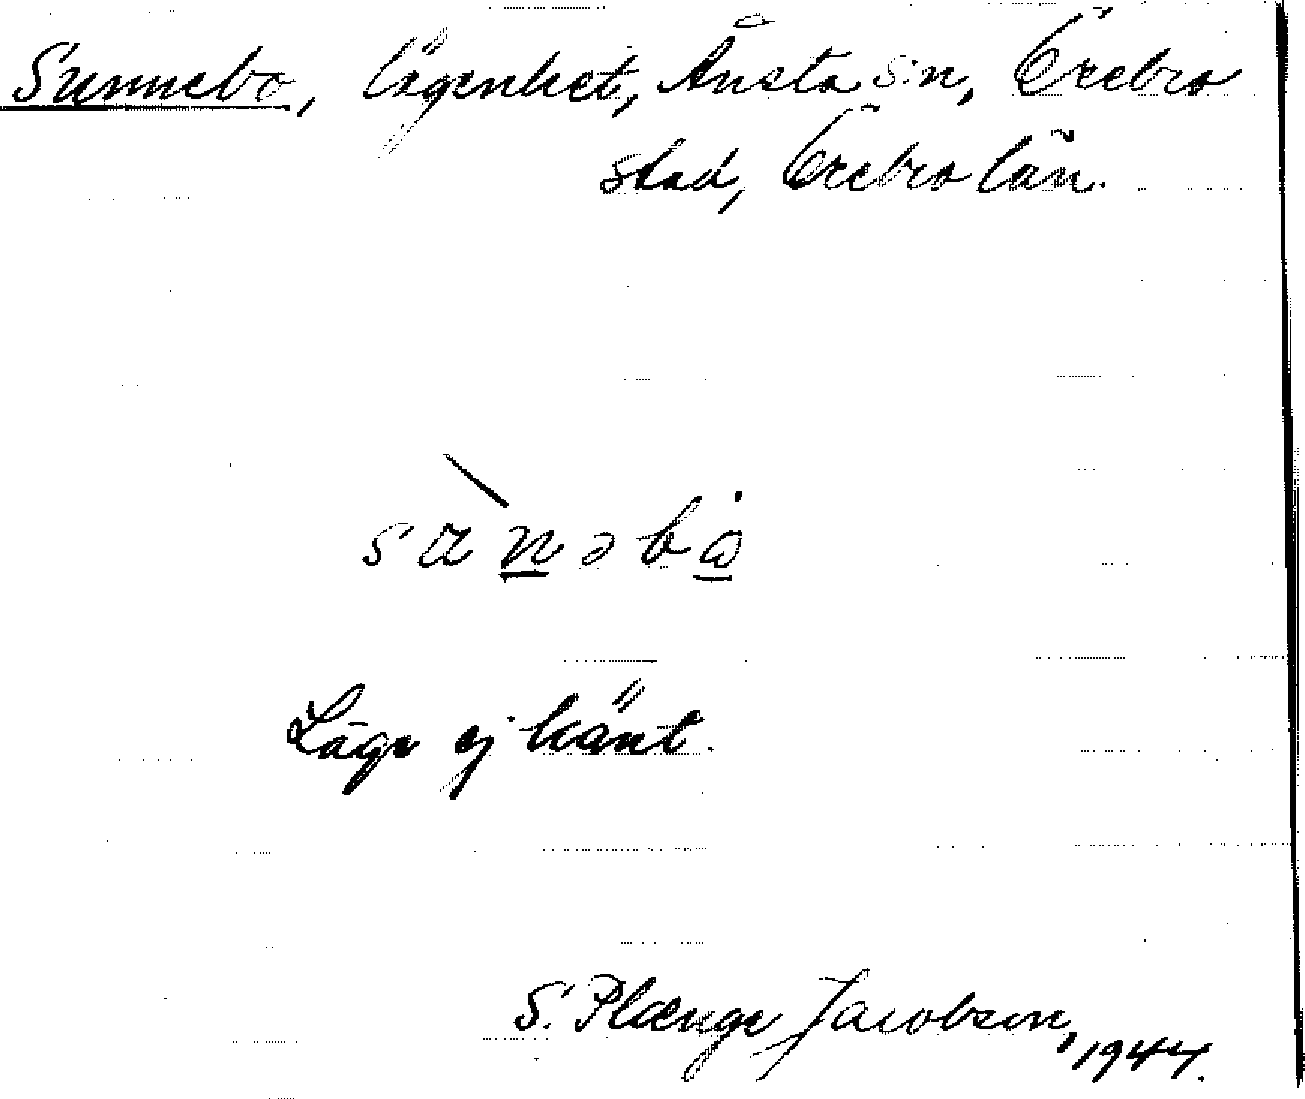 Sunnebo, lägenhet, Ånsta sn, Örebro
stad, Örebro län.
Läge ej känt.
S. Plænge Jacobson,
1944.